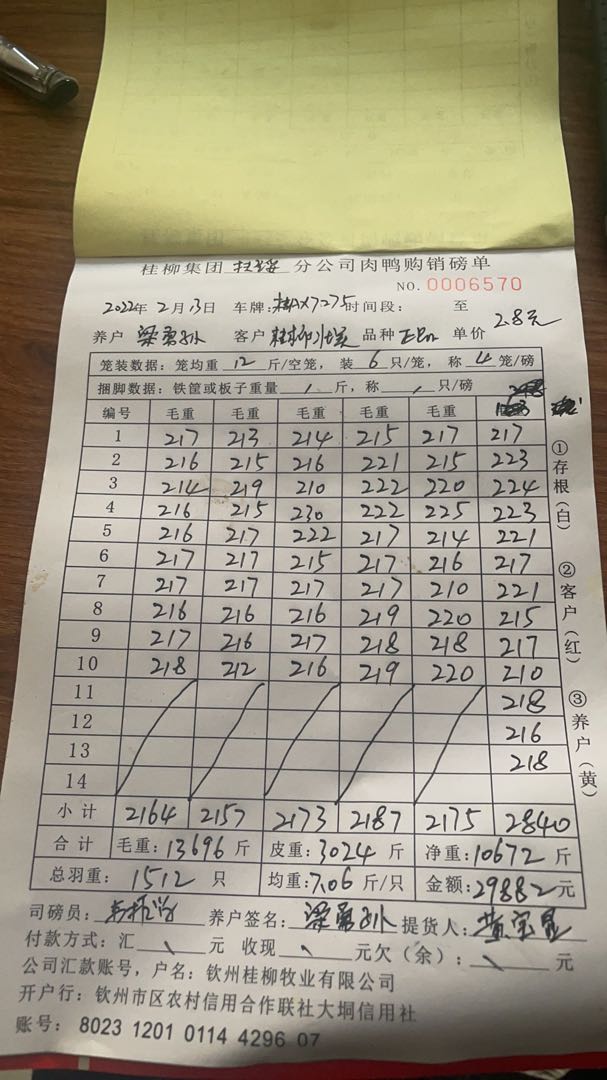 桂柳集团 扶绥 分公司肉鸭购销磅单
NO. 0006570
2022年 2月13日 车牌: 时间段: 至
养户 客户 品种 单价 2.8元
笼装数据: 笼均重 12 斤/空笼, 装 6 只/笼, 称 4 笼/磅
捆脚数据: 铁筐或板子重量 斤, 称 只/磅
编号 毛重 毛重 毛重 毛重 毛重
1 217 213 214 215 217 217
2 216 215 216 221 215 223
3 214 219 210 222 220 224
4 216 215 230 222 225 223
5 216 217 222 217 214 221
6 217 217 215 217 216 217
7 217 217 217 217 210 221
8 216 216 216 219 220 215
9 217 216 217 218 218 217
10 218 212 216 219 220 210
11 218
12 216
13 218
14
小计 2164 2157 2173 2187 2175 2840
合计 毛重: 13696 斤 皮重: 3024 斤 净重: 10672 斤
总羽重: 1512 只 均重: 7.06 斤/只 金额: 29882 元
司磅员: 养户签名: 提货人:
付款方式: 汇 元 收现 元欠(余): 元
公司汇款账号, 户名: 钦州桂柳牧业有限公司
开户行: 钦州市区农村信用合作联社大垌信用社
账号: 8023 1201 0114 4296 07
①存根(白)
②客户(红)
③养户(黄)